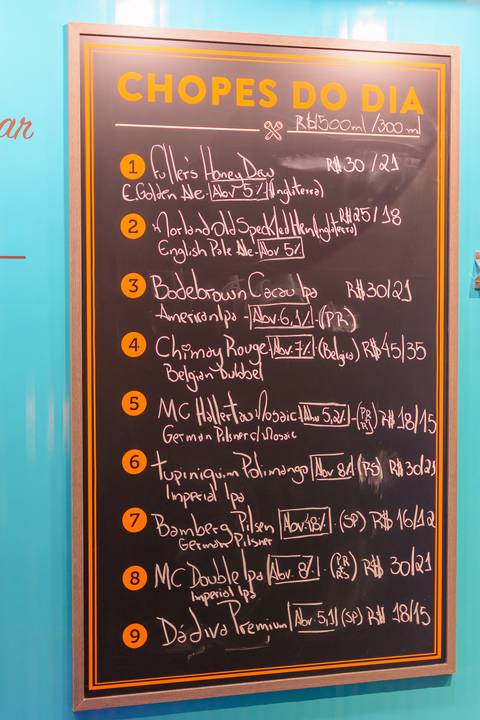 ar
CHOPES DO DIA
R$ 500ml /300ml
1 Fuller's Honey Dew R$30/21
E.Golden Ale-Abv 5%(Inglaterra)
2 Morland Old Speckled Hen(Inglaterra) R$25/18
English Pale Ale-Abv 5%
3 Bodebrown Cacau Ipa R$30/21
American Ipa-Abv.6,1%-(PR)
4 Chimay Rouge-Abv.7%-(Belgica) R$45/35
Belgian Dubbel
5 MC Hallertau Mosaic-Abv 5,2%-(PR RJ) R$18/15
German Pilsner c/Mosaic
6 Tupiniquim Polimango Abv 8% (RS) R$30/21
Imperial Ipa
7 Bamberg Pilsen (SP) R$16/12
German Pilsner
8 MC Double Ipa Abv. 8% R$ 30/21
Imperial Ipa
9 Dádiva Premium Abv 5,1% (SP) R$ 18/15